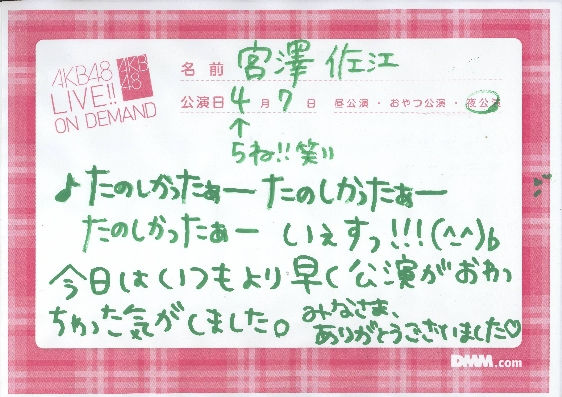 AKB48
LIVE!!
ON DEMAND
AKB
48
名前 宮澤 佐江
公演日 4月7日 昼公演・おやつ公演・夜公演
↑
5ね!!笑〃
♪たのしかったぁー たのしかったぁー
たのしかったぁー いぇすっ!!!(^-^)b
今日はいつもより早く公演がおわっ
ちゃった気がしました。みなさま、
ありがとうございました♡
DMM.com